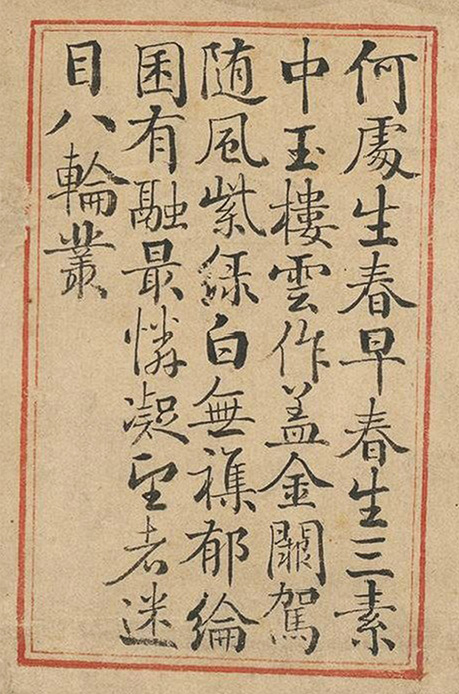 何處生春早春生三素
中玉樓雲作盖金闕駕
随風紫綠白無襍郁綸
囷有融最憐凝望者迷
目八輪叢